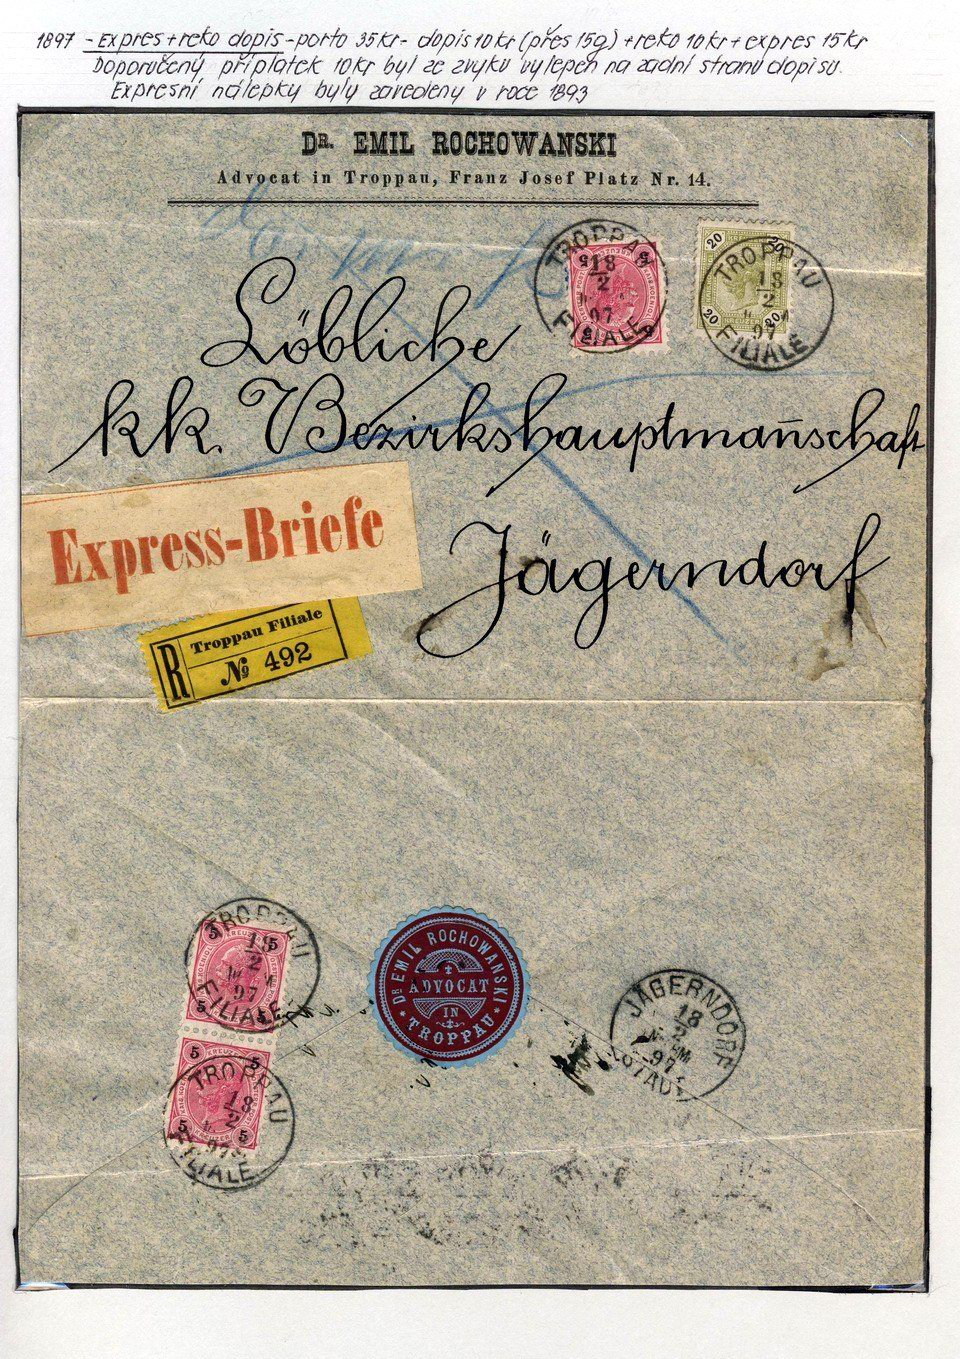 1897 - Expres + reko dopis - porto 35 kr - dopis 10 kr (přes 15g) + reko 10 kr + expres 15 kr
Doporučený příplatek 10 kr byl ze zvyku vylepen na zadní stranu dopisu.
Expresní nálepky byly zavedeny v roce 1893
DR. EMIL ROCHOWANSKI
Advocat in Troppau, Franz Josef Platz Nr. 14.
TROPPAU
18
2
97
FILIALE
5
5
20
20
20
20
TROPPAU
18
2
97
FILIALE
Löbliche
kk. Bezirkshauptmañschaft
Express-Briefe
Jägerndorf
R
Troppau Filiale
№ 492
TROPPAU
18
2
97
FILIALE
5
5
5
TROPPAU
18
2
97
FILIALE
5
5
5
5
DR EMIL ROCHOWANSKI
ADVOCAT
IN
TROPPAU
JÄGERNDORF
18
2
97
STADT